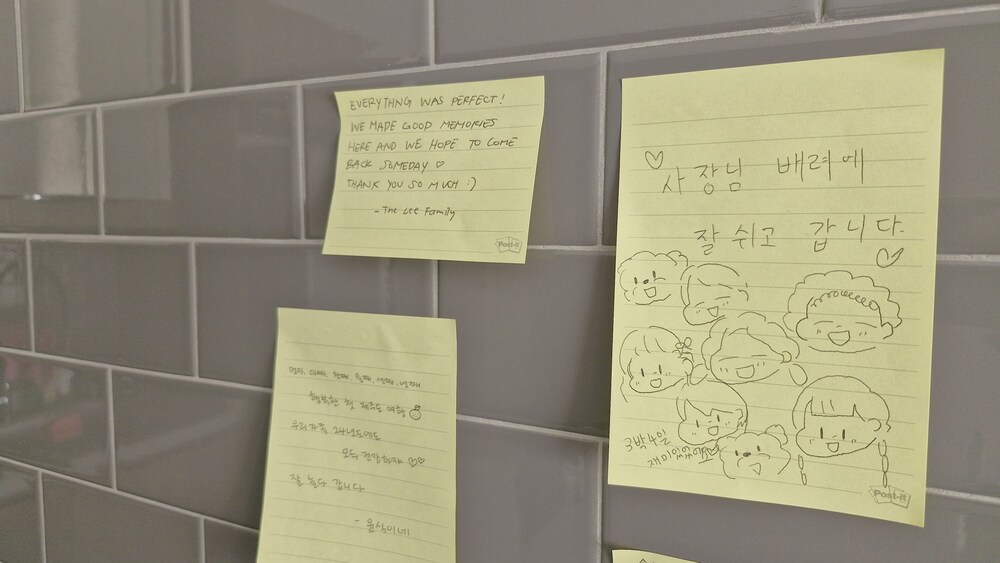 EVERYTHING WAS PERFECT!
WE MADE GOOD MEMORIES
HERE AND WE HOPE TO COME
BACK SOMEDAY ♡
THANK YOU SO MUCH :)
- The Lee Family
Post-it
♡ 사장님 배려에
잘 쉬고 갑니다. ♡
3박4일
재미있었어요♡
Post-it
행복한 첫 제주도 여행
우리가족 24년도에도
모두 건강하자 ♡♡
잘 놀다 갑니다
- 윤식이네